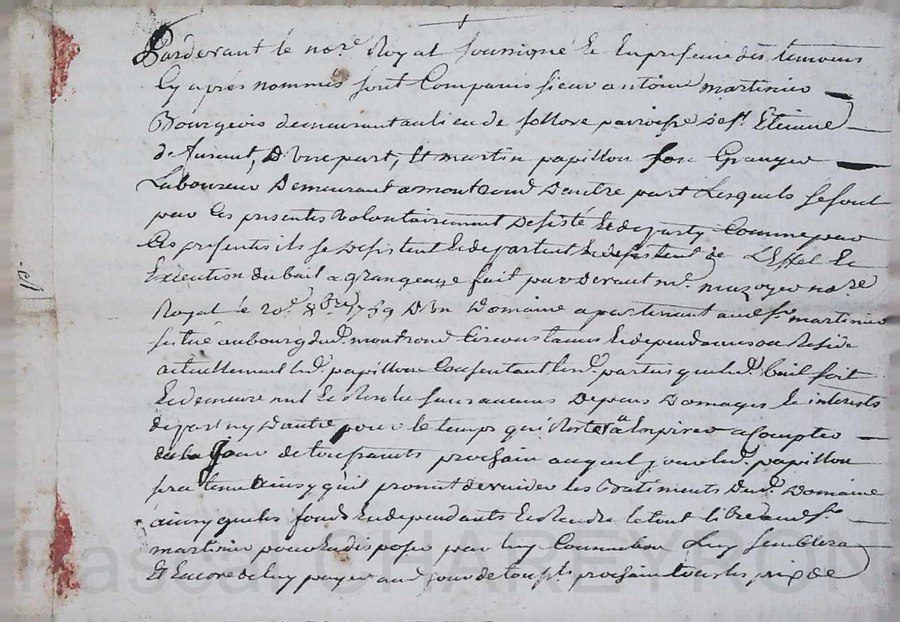 Pardevant le nore Royal soussigné Et En presence des temoins
Cy après nommés sont Comparus sieur antoine martinier
Bourgeois demeurant au lieu de parroisse de st Etienne
d'une part, Et martin papillon fon Granger
Laboureur Demeurant a montrond D'autre part Lesquels se sont
pour Ces presentes volontairement Desisté Et departy Comme pour
Ces presentes ils se Desistent Et departent de L'Effet Et
Execution du bail a grangeage fait pardevant me mazoyer nore
Royal le 20e 8bre 1769 D'un Domaine apartenant aud. sr martinier
situé au bourg dud. montrond Circonstances Et dependances ou Reside
actuellement led. papillon Consentant lesd. parties que led. bail soit
Et demeure nul Et Resolu sans aucuns Depens Domages Et interets
de part ny D'autre pour le temps qui Reste a Expirer a Compter
du jour de toussaints prochain auquel jour led. papillon
sera tenu ainsy qu'il promet de vuider les Batiments dud. Domaine
ainsy que les fonds En dependants Et Rendre le tout libre aud. sr
martinier pour En disposer par luy Comme bon Luy semblera
Et Encore de luy payer aud. jour de toussts prochain tous les prix de
Pascal CHAREYRON